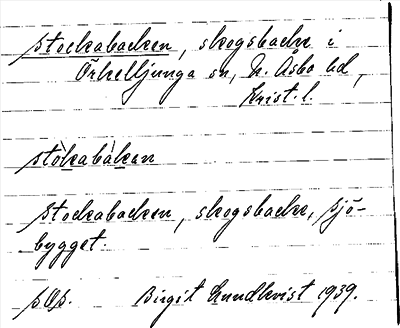 stockabacken, skogsbacke i
Örkelljunga sn, N. Åsbo hd,
Krist. l.
stòkabàkan
stockabacken, skogsbacke, sjö-
bygget.
Birgit Lundkvist 1939.